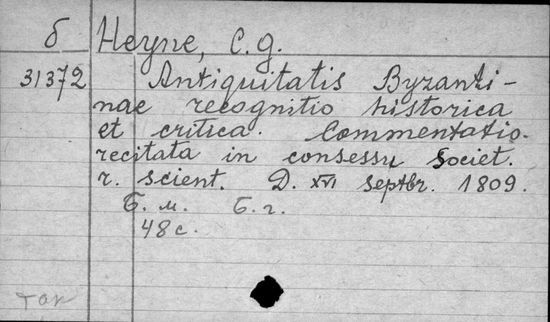 б Heyne, C. g.
31372 Antiquitatis Byzanti-
nae recognitio historica
et critica. Commentatio.
recitata in consessu Societ.
r. scient. D. XVI Septbr. 1809.
Б. м. Б. г.
48 с.